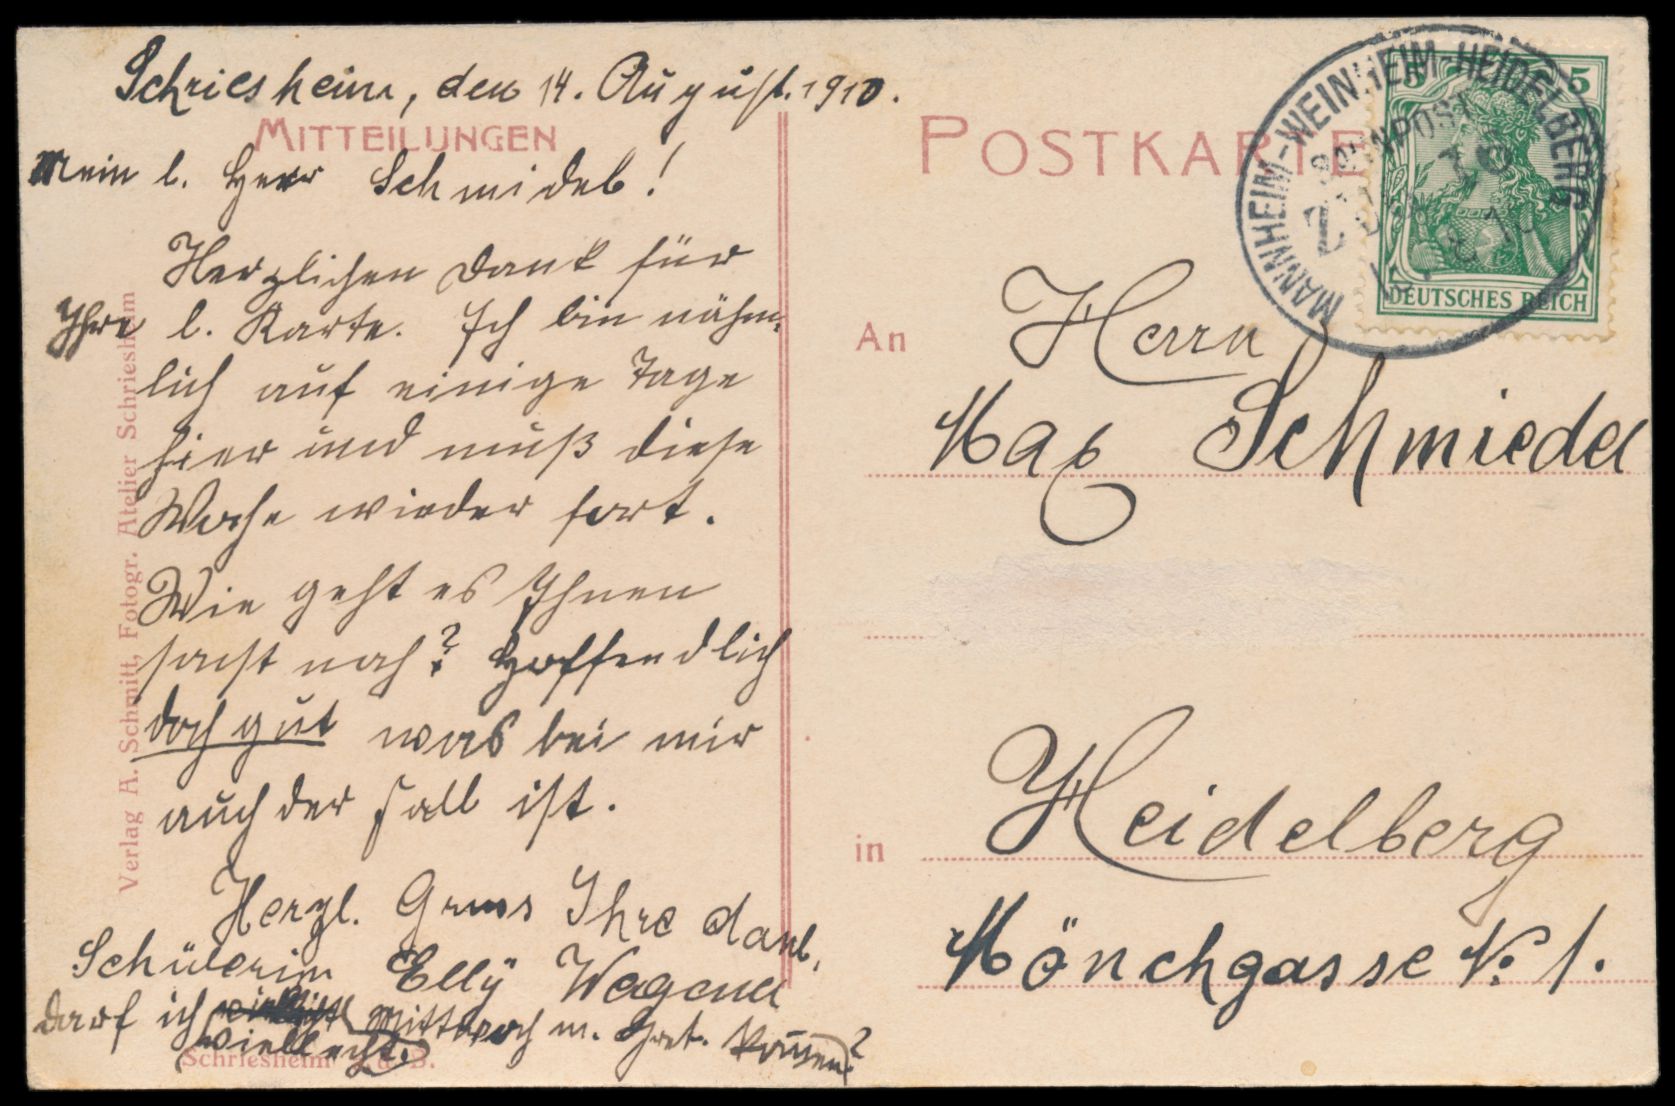 Schriesheim, den 14. August. 1910.
MITTEILUNGEN
Mein l. Herr Schmidel!
Herzlichen Dank für
Ihre l. Karte. Ich bin nähm-
lich auf einige Tage
hier und muß diese
Woche wieder fort.
Wie geht es Ihnen
sonst noch? Hoffendlich
doch gut was bei mir
auch der Fall ist.
Herzl. Gruss Ihre dankb.
Schülerin Elly Wagener
Darf ich Mittwoch m. Gret. kommen?
viellecht
Verlag A. Schmitt, Fotogr. Atelier Schriesheim
Schriesheim a. d. B.
POSTKARTE
MANNHEIM-WEINHEIM-HEIDELBERG
BAHNPOST
5 5
DEUTSCHES REICH
An
Herrn
Max Schmiedel
in
Heidelberg
Mönchgasse No 1.